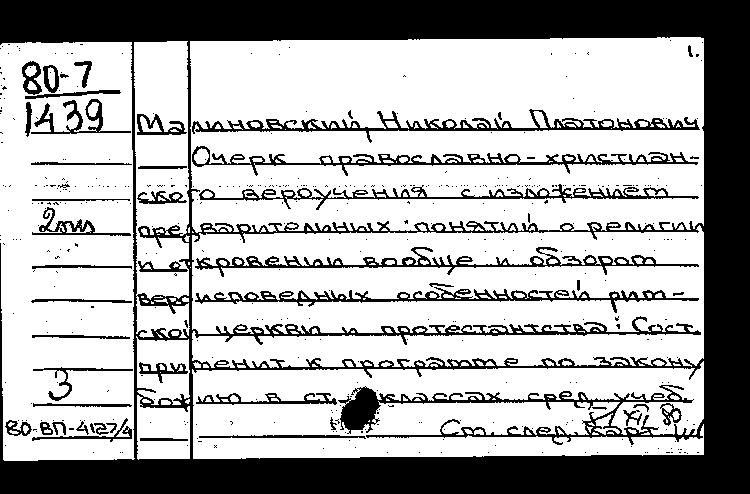 1.
80-7
1439
Малиновский, Николай Платонович.
Очерк православно-христиан-
ского вероучения с изложением
2тип
предварительных понятий о религии
и откровении вообще и обзором
вероисповедных особенностей рим-
ской церкви и протестантства: Сост.
применит. к программе по закону
3
божию в ст. классах сред. учеб.
80-ВП-4127/4
См. след. карт.
XII 80